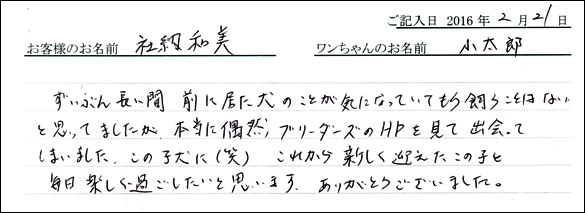 ご記入日 2016年 2月 21日
お客様のお名前 社納和美 ワンちゃんのお名前 小太郎
ずいぶん長い間 前に居た犬のことが気になっていてもう飼うことはない
と思ってましたが、本当に偶然、ブリーダーズのHPを見て出会って
しまいました。この子犬に(笑) これから新しく迎えたこの子と
毎日楽しく過ごしたいと思います。ありがとうございました。